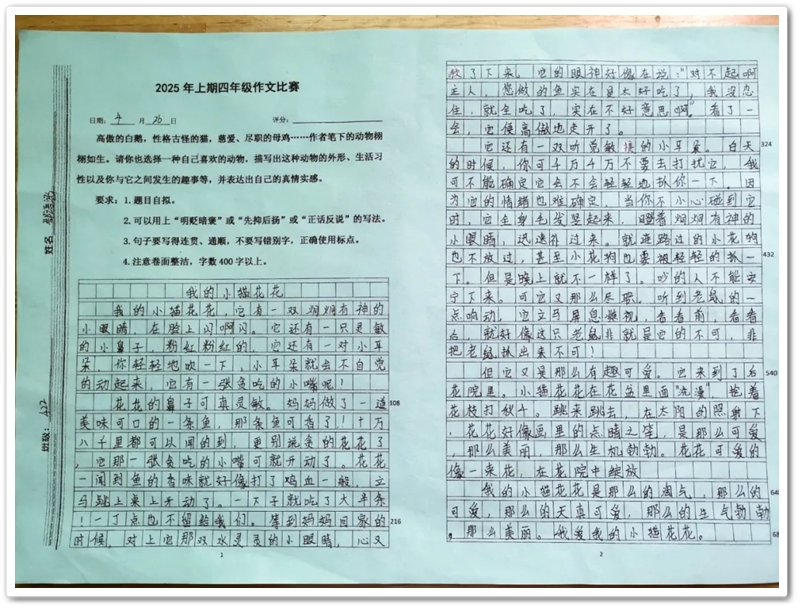 2025 年上期四年级作文比赛
日期: 4 月 20 日 评分:
高傲的白鹅,性格古怪的猫,慈爱、尽职的母鸡……作者笔下的动物栩
栩如生。请你也选择一种自己喜欢的动物,描写出这种动物的外形、生活习
性以及你与它之间发生的趣事等,并表达出自己的真情实感。
要求:1.题目自拟。
2.可以用上“明贬暗褒”或“先抑后扬”或“正话反说”的写法。
3.句子要写得连贯、通顺,不要写错别字,正确使用标点。
4.注意卷面整洁,字数 400 字以上。
姓名:
班级:
我的小猫花花
我的小猫花花,它有一双炯炯有神的
小眼睛,在脸上闪啊闪。它还有一只灵敏
的小鼻子,粉红粉红的,它还有一对小耳
朵,你轻轻地吹一下,小耳朵就会不自觉
的动起来,它有一张贪吃的小嘴呢!
花花的鼻子可真灵敏。妈妈做了一道 108
美味可口的一条鱼,那条鱼可香了!十万
八千里都可以闻的到,更别说贪的花花了
,它那一张贪吃的小嘴可就开动了。花花
一闻到鱼的香味就好像打了鸡血一般,立
马跳上桌上开动了。一下子就吃了大半条
!一丁点也不留给我们。等到妈妈回家的 216
时候,对上它那双水灵灵的小眼睛,心又
1
软了下来。它的眼神好像在说:“对不起啊
主人,您做的鱼实在是太好吃了,我没忍
住,就全吃了,实在不好意思啊”。看了一
会,它便高傲地走开了。
它还有一双听觉敏捷的小耳朵。白天 324
的时候,你可千万千万不要去打扰它,我
可不能确定它会不会轻轻地抓你一下。因
为它的情绪也难确定,当你不小心碰到它
时,它全身毛发竖起来,瞪着炯炯有神的
小眼睛,迅速扑过来。就连路过的小花狗
也不放过,甚至小花狗也要被轻轻的抓一 432
下。但是晚上就不一样了。吵的人不能安
宁下来。可它又那么尽职。听到老鼠的一
点响动,它立马屏息凝视,看看前,看看
后,就好像这只老鼠非就是它的不可,非
把老鼠抓出来不可!
但它又是那么有趣可爱。它来到了后 540
花院里。小猫花花在花盆里面“洗澡”,抱着
花枝打秋千。跳来跳去,在太阳的照射下
,花花好像画里的点睛之笔,是那么可爱
,那么美丽,那么生机勃勃。花花可爱的
像一朵花,在花院中绽放
我的小猫花花是那么的淘气,那么的 648
可爱,那么的天真可爱,那么的生气勃勃
,那么美丽。我爱我的小猫花花。
2